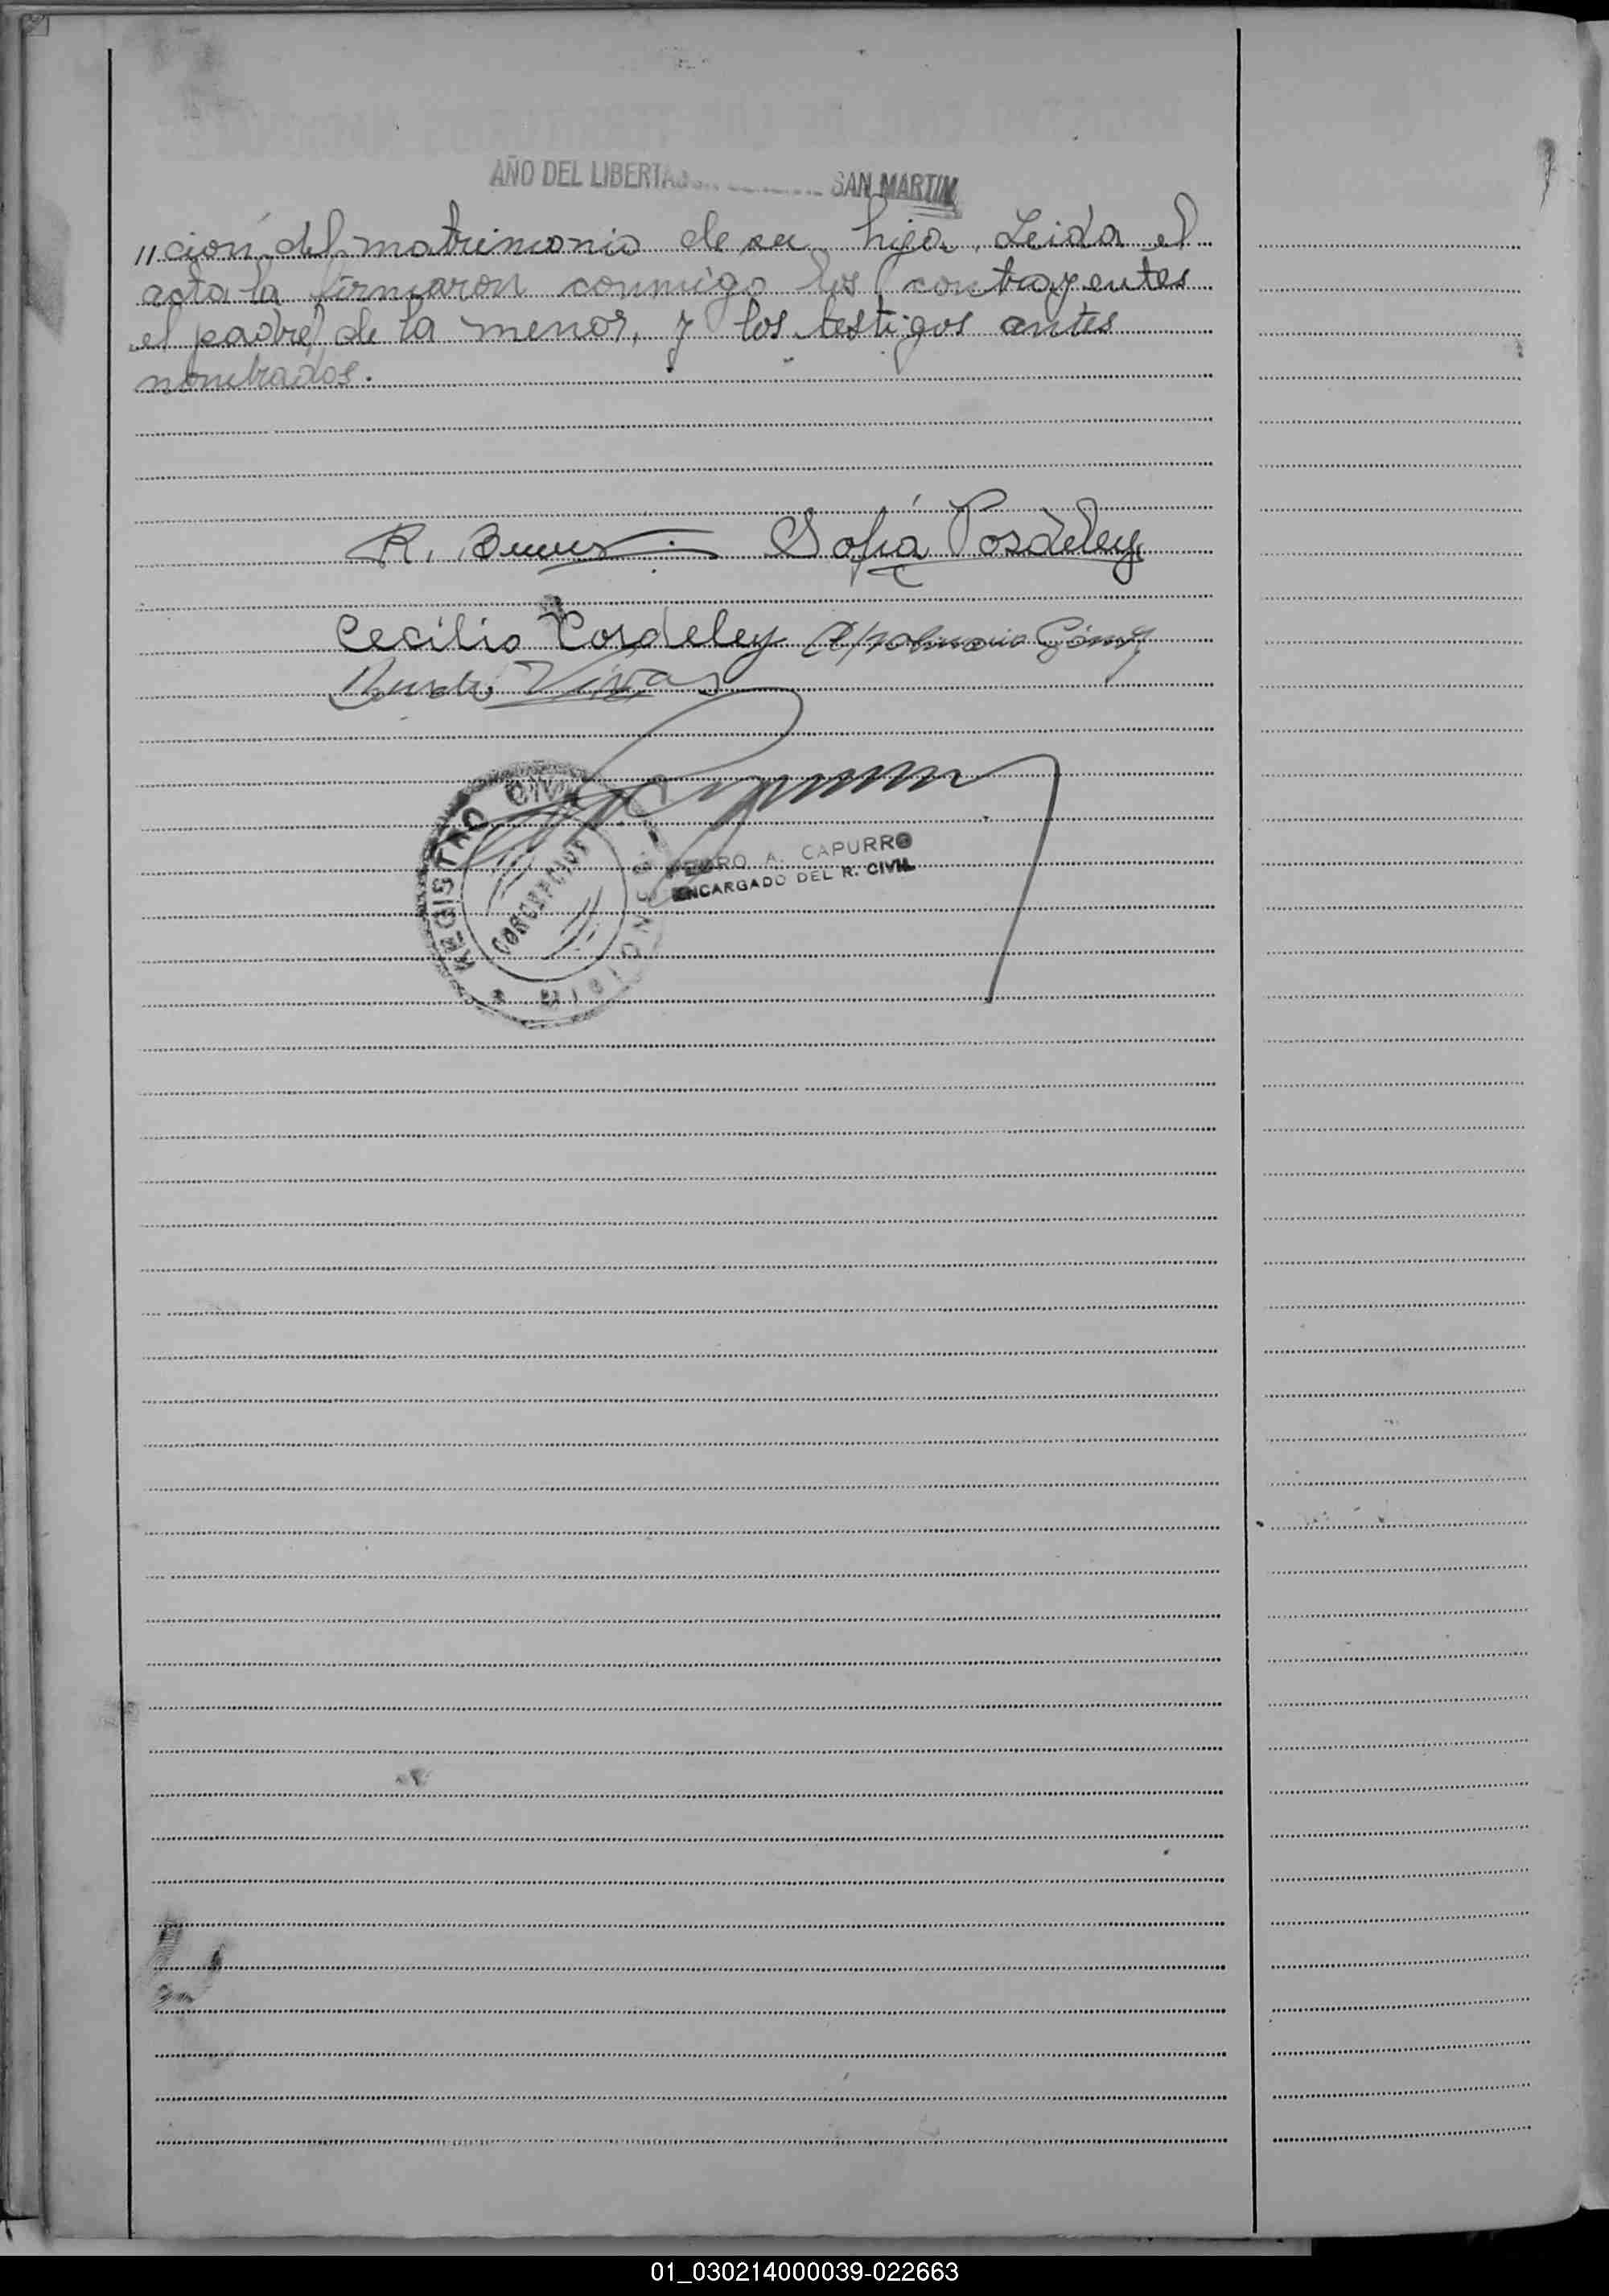 AÑO DEL LIBERTADOR GENERAL SAN MARTIN
"ción del matrimonio de su hija. Leida el
acta la firmaron conmigo los contrayentes
el padre de la menor, y los testigos antes
nombrados.
R. Sofía Posdeley
Cecilio Posdeley Apolinario Gómez
Vivas
REGISTRO CIVIL
CONCEPCION
MISIONES
PEDRO A. CAPURRO
ENCARGADO DEL R. CIVIL
01_030214000039-022663